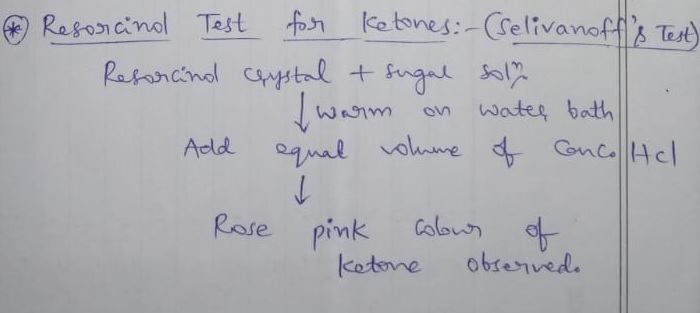 * Resorcinol Test for Ketones:- (Selivanoff's Test)
Resorcinol crystal + sugar solⁿ
↓ warm on water bath
Add equal volume of Conc. Hcl
↓
Rose pink colour of
ketone observed.